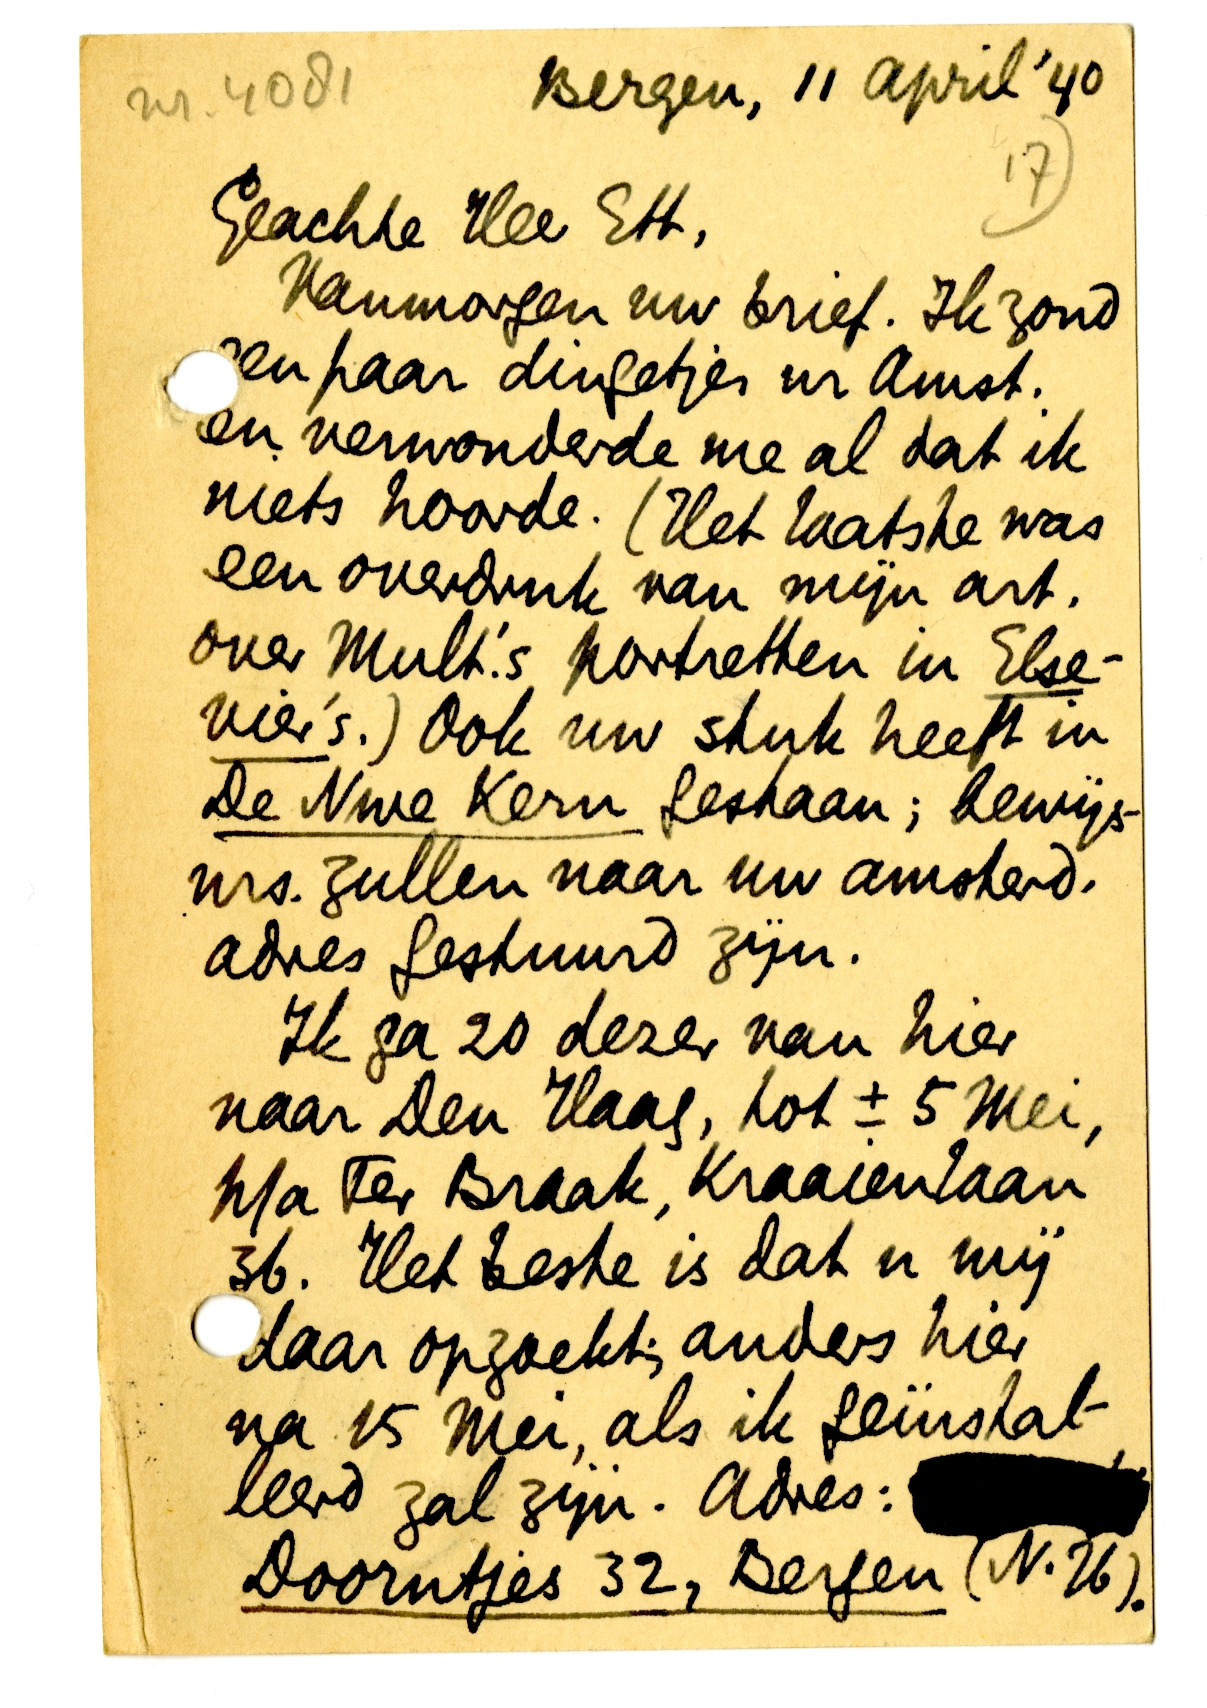 nr. 4081
Bergen, 11 April '40
17)
Geachte Heer Ett,
Vanmorgen uw brief. Ik zond
een paar dingetjes nr Amst.
en verwonderde me al dat ik
niets hoorde. (Het laatste was
een overdruk van mijn art.
over Mult.'s portretten in Else-
vier's.) Ook uw stuk heeft in
De Nwe Kern gestaan; bewijs-
nrs. zullen naar uw amsterd.
adres gestuurd zijn.
Ik ga 20 dezer van hier
naar Den Haag, tot ± 5 Mei,
p/a Ter Braak, Kraaienlaan
36. Het beste is dat u mij
daar opzoekt; anders hier
na 15 Mei, als ik geïnstal-
leerd zal zijn. Adres:
Doorntjes 32, Bergen (N.H).